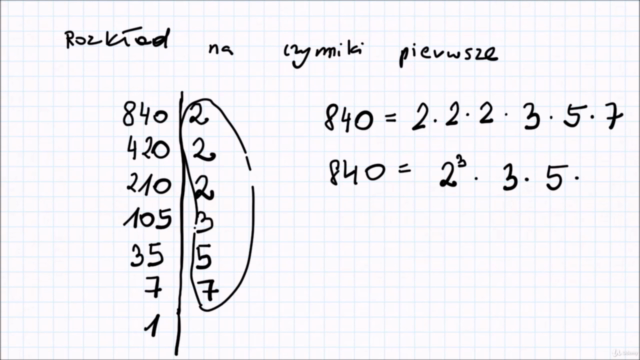 Rozkład na czynniki pierwsze
840 | 2
420 | 2
210 | 2
105 | 3
35 | 5
7 | 7
1 |
840 = 2 · 2 · 2 · 3 · 5 · 7
840 = 2³ · 3 · 5 ·